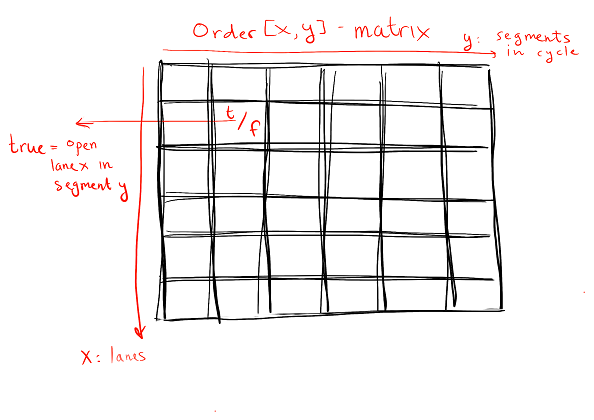 Order [x,y] - matrix
y: segments
in cycle
t/f
true = open
lane x in
segment y
X: lanes